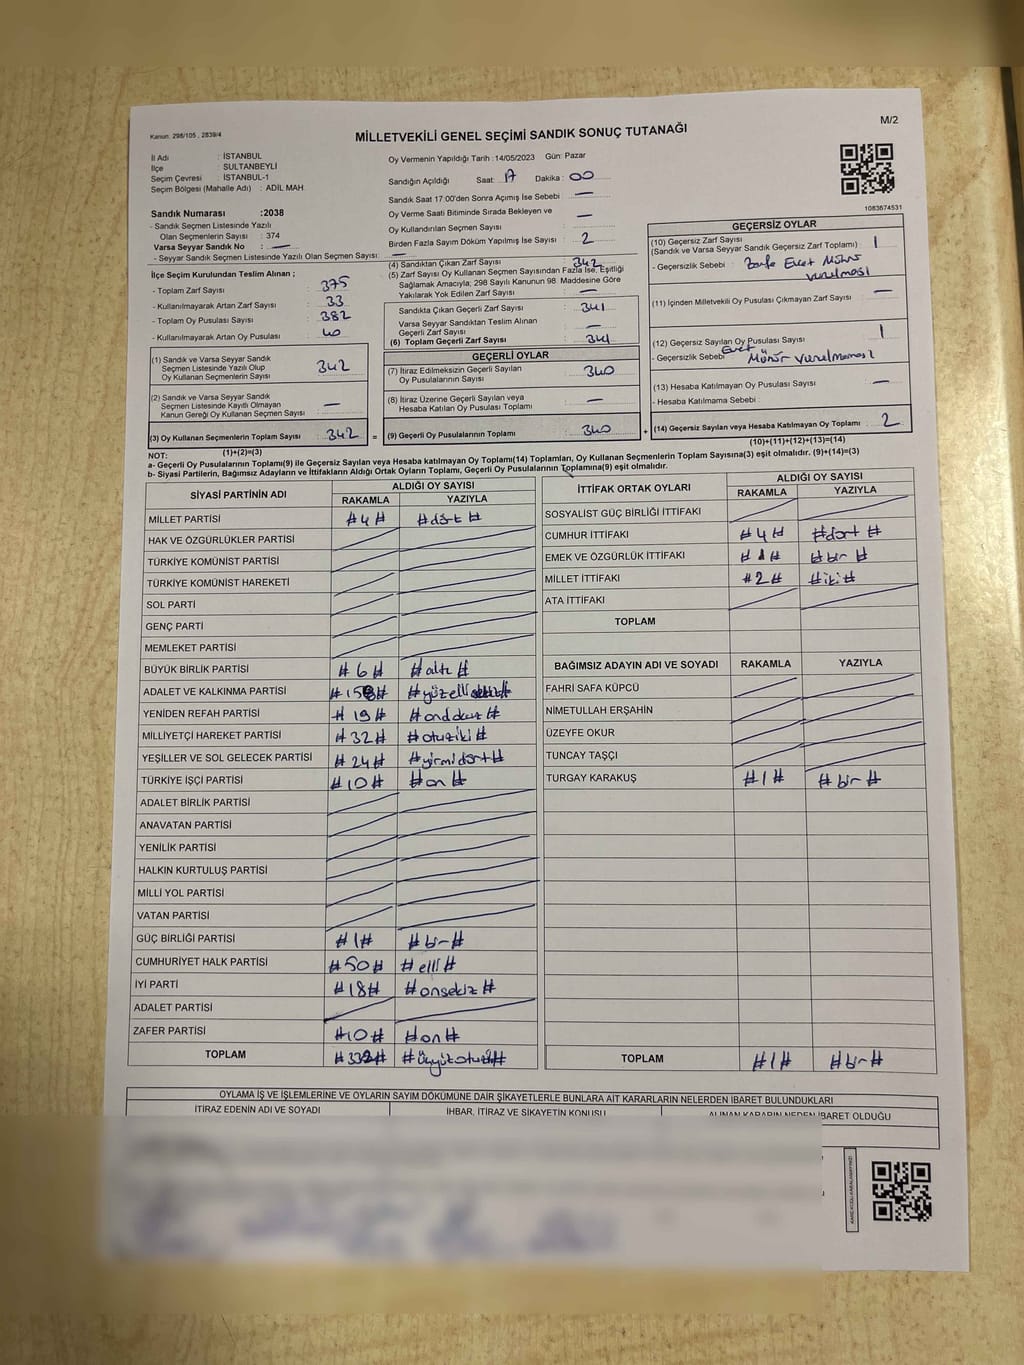 Kanun: 298/105 , 2839/4
MİLLETVEKİLİ GENEL SEÇİMİ SANDIK SONUÇ TUTANAĞI
M/2
İl Adı : İSTANBUL
İlçe : SULTANBEYLİ
Seçim Çevresi : İSTANBUL-1
Seçim Bölgesi (Mahalle Adı) : ADİL MAH.
Sandık Numarası :2038
- Sandık Seçmen Listesinde Yazılı
Olan Seçmenlerin Sayısı : 374
Varsa Seyyar Sandık No : —
- Seyyar Sandık Seçmen Listesinde Yazılı Olan Seçmen Sayısı: —
İlçe Seçim Kurulundan Teslim Alınan ;
- Toplam Zarf Sayısı : 375
- Kullanılmayarak Artan Zarf Sayısı : 33
- Toplam Oy Pusulası Sayısı : 382
- Kullanılmayarak Artan Oy Pusulası : 40
(1) Sandık ve Varsa Seyyar Sandık
Seçmen Listesinde Yazılı Olup
Oy Kullanan Seçmenlerin Sayısı : 342
(2) Sandık ve Varsa Seyyar Sandık
Seçmen Listesinde Kayıtlı Olmayan
Kanun Gereği Oy Kullanan Seçmen Sayısı : —
(3) Oy Kullanan Seçmenlerin Toplam Sayısı : 342 =
(1)+(2)=(3)
Oy Vermenin Yapıldığı Tarih :14/05/2023 Gün: Pazar
Sandığın Açıldığı Saat: 17 Dakika : 00
Sandık Saat 17:00'den Sonra Açılmış İse Sebebi : —
Oy Verme Saati Bitiminde Sırada Bekleyen ve
Oy Kullandırılan Seçmen Sayısı : —
Birden Fazla Sayım Döküm Yapılmış İse Sayısı : 2
(4) Sandıktan Çıkan Zarf Sayısı : 342
(5) Zarf Sayısı Oy Kullanan Seçmen Sayısından Fazla İse, Eşitliği
Sağlamak Amacıyla; 298 Sayılı Kanunun 98. Maddesine Göre
Yakılarak Yok Edilen Zarf Sayısı : —
Sandıkta Çıkan Geçerli Zarf Sayısı : 341
Varsa Seyyar Sandıktan Teslim Alınan
Geçerli Zarf Sayısı : —
(6) Toplam Geçerli Zarf Sayısı : 341
GEÇERLİ OYLAR
(7) İtiraz Edilmeksizin Geçerli Sayılan
Oy Pusulalarının Sayısı : 340
(8) İtiraz Üzerine Geçerli Sayılan veya
Hesaba Katılan Oy Pusulası Toplamı : —
(9) Geçerli Oy Pusulalarının Toplamı : 340 +
1083674531
GEÇERSİZ OYLAR
(10) Geçersiz Zarf Sayısı
(Sandık ve Varsa Seyyar Sandık Geçersiz Zarf Toplamı) : 1
- Geçersizlik Sebebi : Zarfa Evet Mührü
vurulması
(11) İçinden Milletvekili Oy Pusulası Çıkmayan Zarf Sayısı : —
(12) Geçersiz Sayılan Oy Pusulası Sayısı : 1
- Geçersizlik Sebebi : Evet Mührü vurulmaması
(13) Hesaba Katılmayan Oy Pusulası Sayısı : —
- Hesaba Katılmama Sebebi :
(14) Geçersiz Sayılan veya Hesaba Katılmayan Oy Toplamı : 2
(10)+(11)+(12)+(13)=(14)
NOT:
a- Geçerli Oy Pusulalarının Toplamı(9) ile Geçersiz Sayılan veya Hesaba katılmayan Oy Toplamı(14) Toplamları, Oy Kullanan Seçmenlerin Toplam Sayısına(3) eşit olmalıdır. (9)+(14)=(3)
b- Siyasi Partilerin, Bağımsız Adayların ve İttifakların Aldığı Ortak Oyların Toplamı, Geçerli Oy Pusulalarının Toplamına(9) eşit olmalıdır.
SİYASİ PARTİNİN ADI ALDIĞI OY SAYISI
RAKAMLA YAZIYLA
MİLLET PARTİSİ #4# #dört#
HAK VE ÖZGÜRLÜKLER PARTİSİ
TÜRKİYE KOMÜNİST PARTİSİ
TÜRKİYE KOMÜNİST HAREKETİ
SOL PARTİ
GENÇ PARTİ
MEMLEKET PARTİSİ
BÜYÜK BİRLİK PARTİSİ #6# #altı#
ADALET VE KALKINMA PARTİSİ
YENİDEN REFAH PARTİSİ #19# #ondokuz#
MİLLİYETÇİ HAREKET PARTİSİ #32# #otuziki#
YEŞİLLER VE SOL GELECEK PARTİSİ #24# #yirmidört#
TÜRKİYE İŞÇİ PARTİSİ #10# #on#
ADALET BİRLİK PARTİSİ
ANAVATAN PARTİSİ
YENİLİK PARTİSİ
HALKIN KURTULUŞ PARTİSİ
MİLLİ YOL PARTİSİ
VATAN PARTİSİ
GÜÇ BİRLİĞİ PARTİSİ #1# #bir#
CUMHURİYET HALK PARTİSİ #50# #elli#
İYİ PARTİ #18# #onsekiz#
ADALET PARTİSİ
ZAFER PARTİSİ #10# #on#
TOPLAM #332#
İTTİFAK ORTAK OYLARI ALDIĞI OY SAYISI
RAKAMLA YAZIYLA
SOSYALİST GÜÇ BİRLİĞİ İTTİFAKI
CUMHUR İTTİFAKI #4# #dört#
EMEK VE ÖZGÜRLÜK İTTİFAKI #1# #bir#
MİLLET İTTİFAKI #2# #iki#
ATA İTTİFAKI
TOPLAM
BAĞIMSIZ ADAYIN ADI VE SOYADI RAKAMLA YAZIYLA
FAHRİ SAFA KÜPCÜ
NİMETULLAH ERŞAHİN
ÜZEYFE OKUR
TUNCAY TAŞÇI
TURGAY KARAKUŞ #1# #bir#
TOPLAM #1# #bir#
OYLAMA İŞ VE İŞLEMLERİNE VE OYLARIN SAYIM DÖKÜMÜNE DAİR ŞİKAYETLERLE BUNLARA AİT KARARLARIN NELERDEN İBARET BULUNDUKLARI
İTİRAZ EDENİN ADI VE SOYADI İHBAR, İTİRAZ VE ŞİKAYETİN KONUSU ALINAN KARARIN NEDEN İBARET OLDUĞU